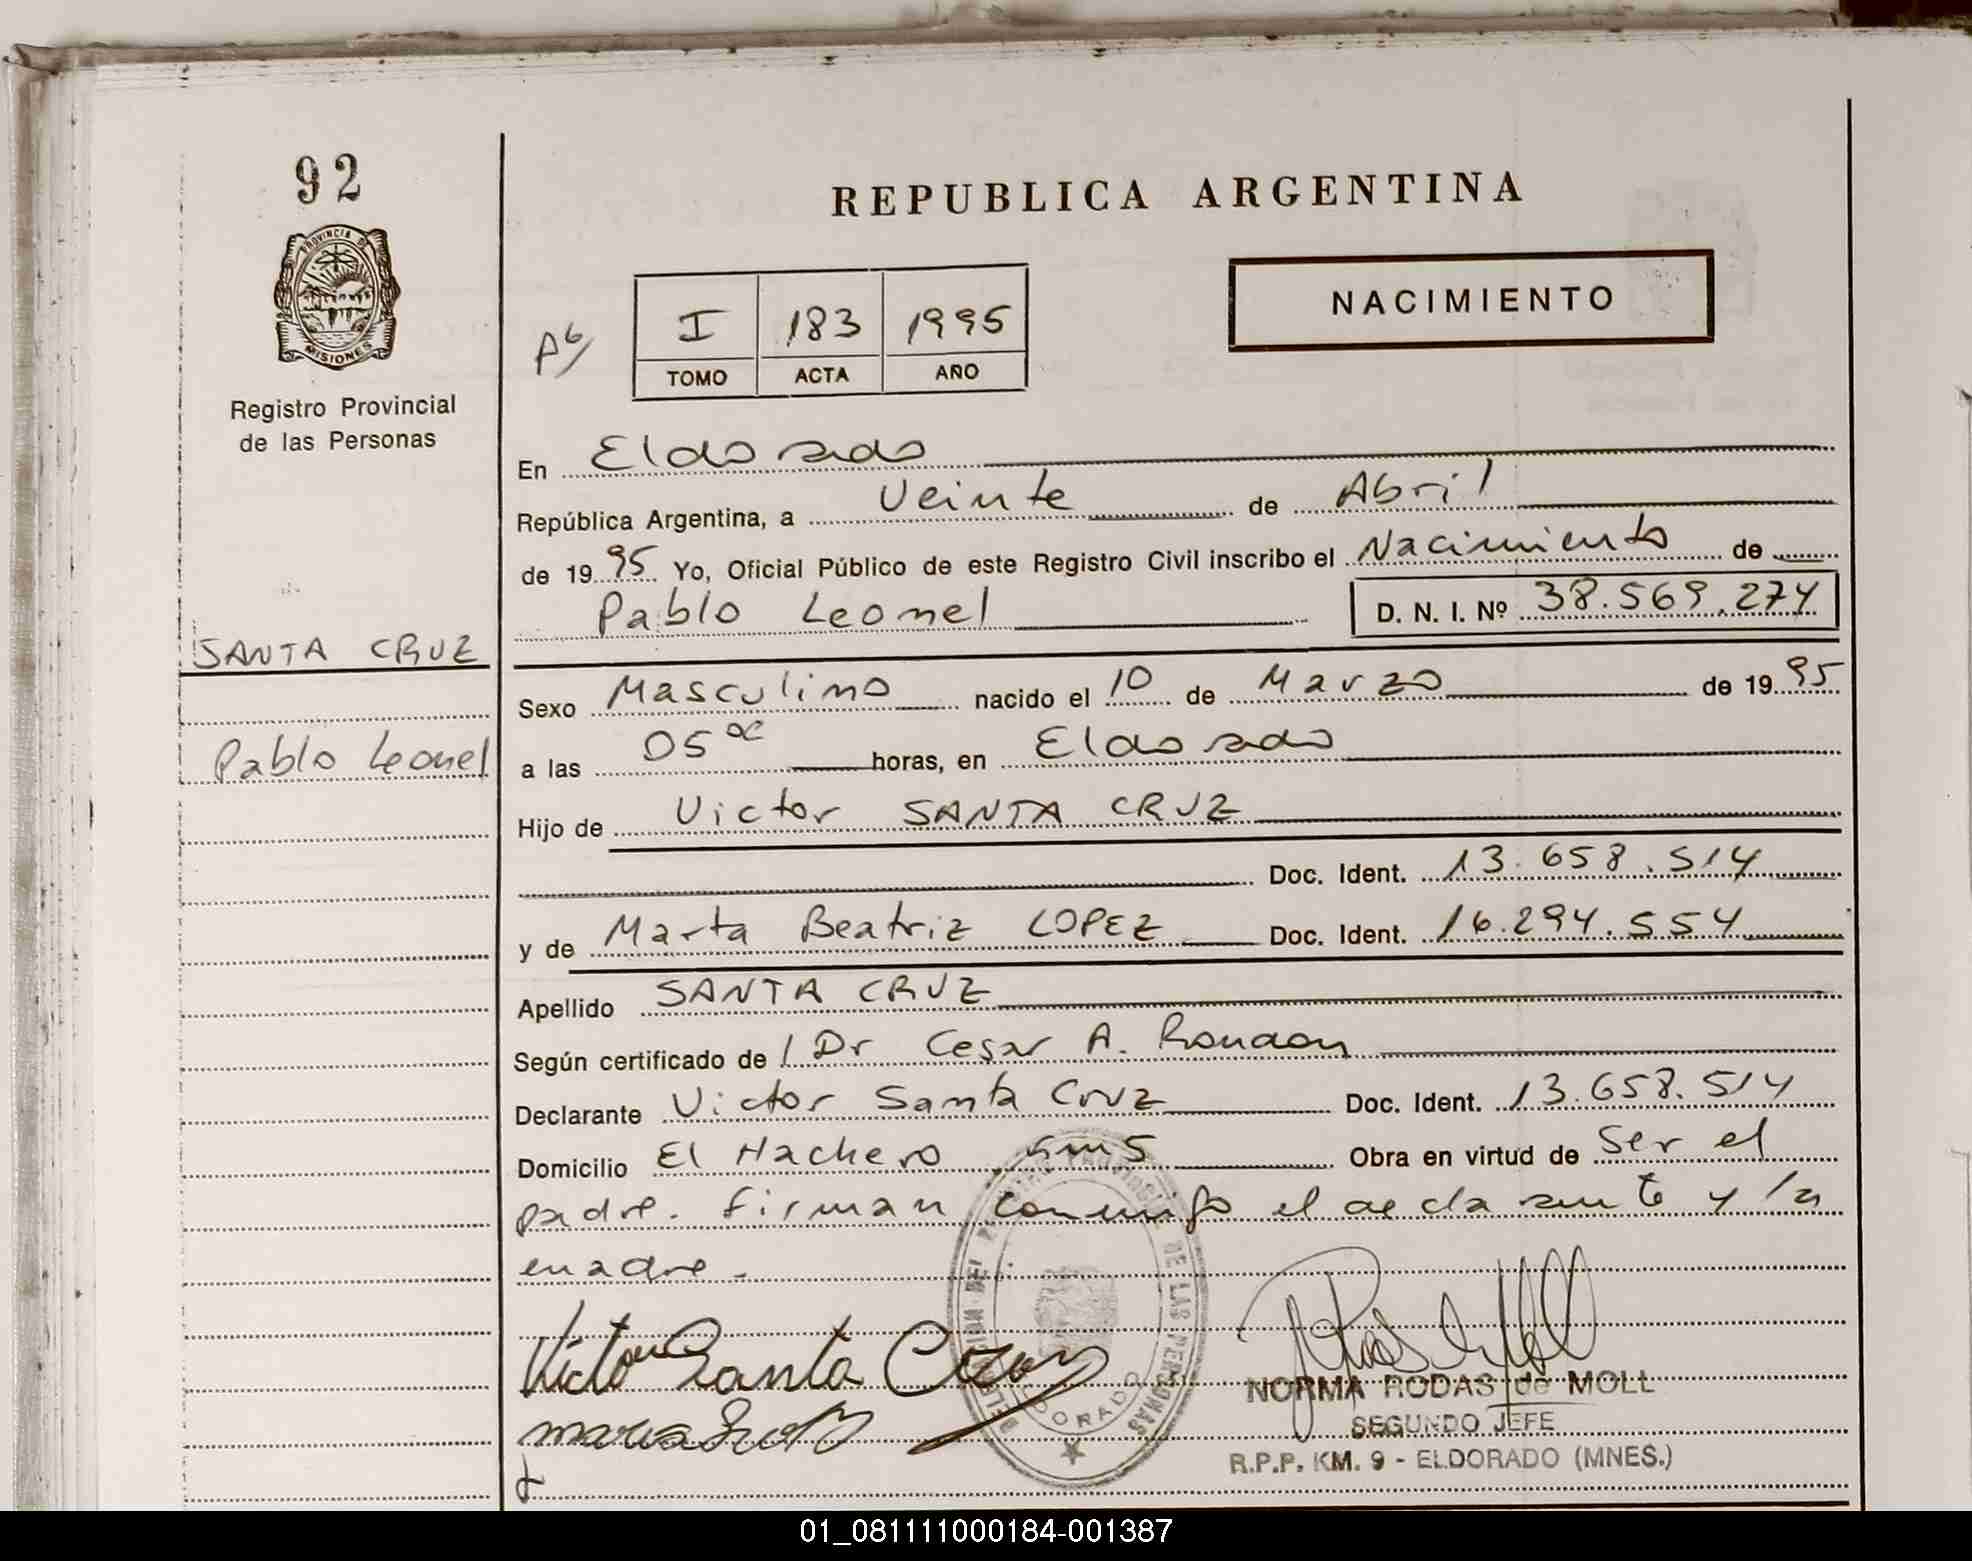 92
PROVINCIA DE
MISIONES
Registro Provincial
de las Personas
SANTA CRUZ
Pablo Leonel
REPUBLICA ARGENTINA
NACIMIENTO
I 183 1995
TOMO ACTA AÑO
En Eldorado
República Argentina, a Veinte de Abril
de 1995 Yo, Oficial Público de este Registro Civil inscribo el Nacimiento de
Pablo Leonel D. N. I. Nº 38.569.274
Sexo Masculino nacido el 10 de Marzo de 1995
a las 05 horas, en Eldorado
Hijo de Victor SANTA CRUZ
Doc. Ident. 13.658.514
y de Marta Beatriz LOPEZ Doc. Ident. 16.294.554
Apellido SANTA CRUZ
Según certificado de / Dr Cesar A. Rondon
Declarante Victor Santa Cruz Doc. Ident. 13.658.514
Domicilio El Hachero Obra en virtud de Ser el
padre. Firman conmigo el declarante y la
madre.-
Victor Santa Cruz
NORMA RODAS de MOLL
SEGUNDO JEFE
R.P.P. KM. 9 - ELDORADO (MNES.)
01_081111000184-001387